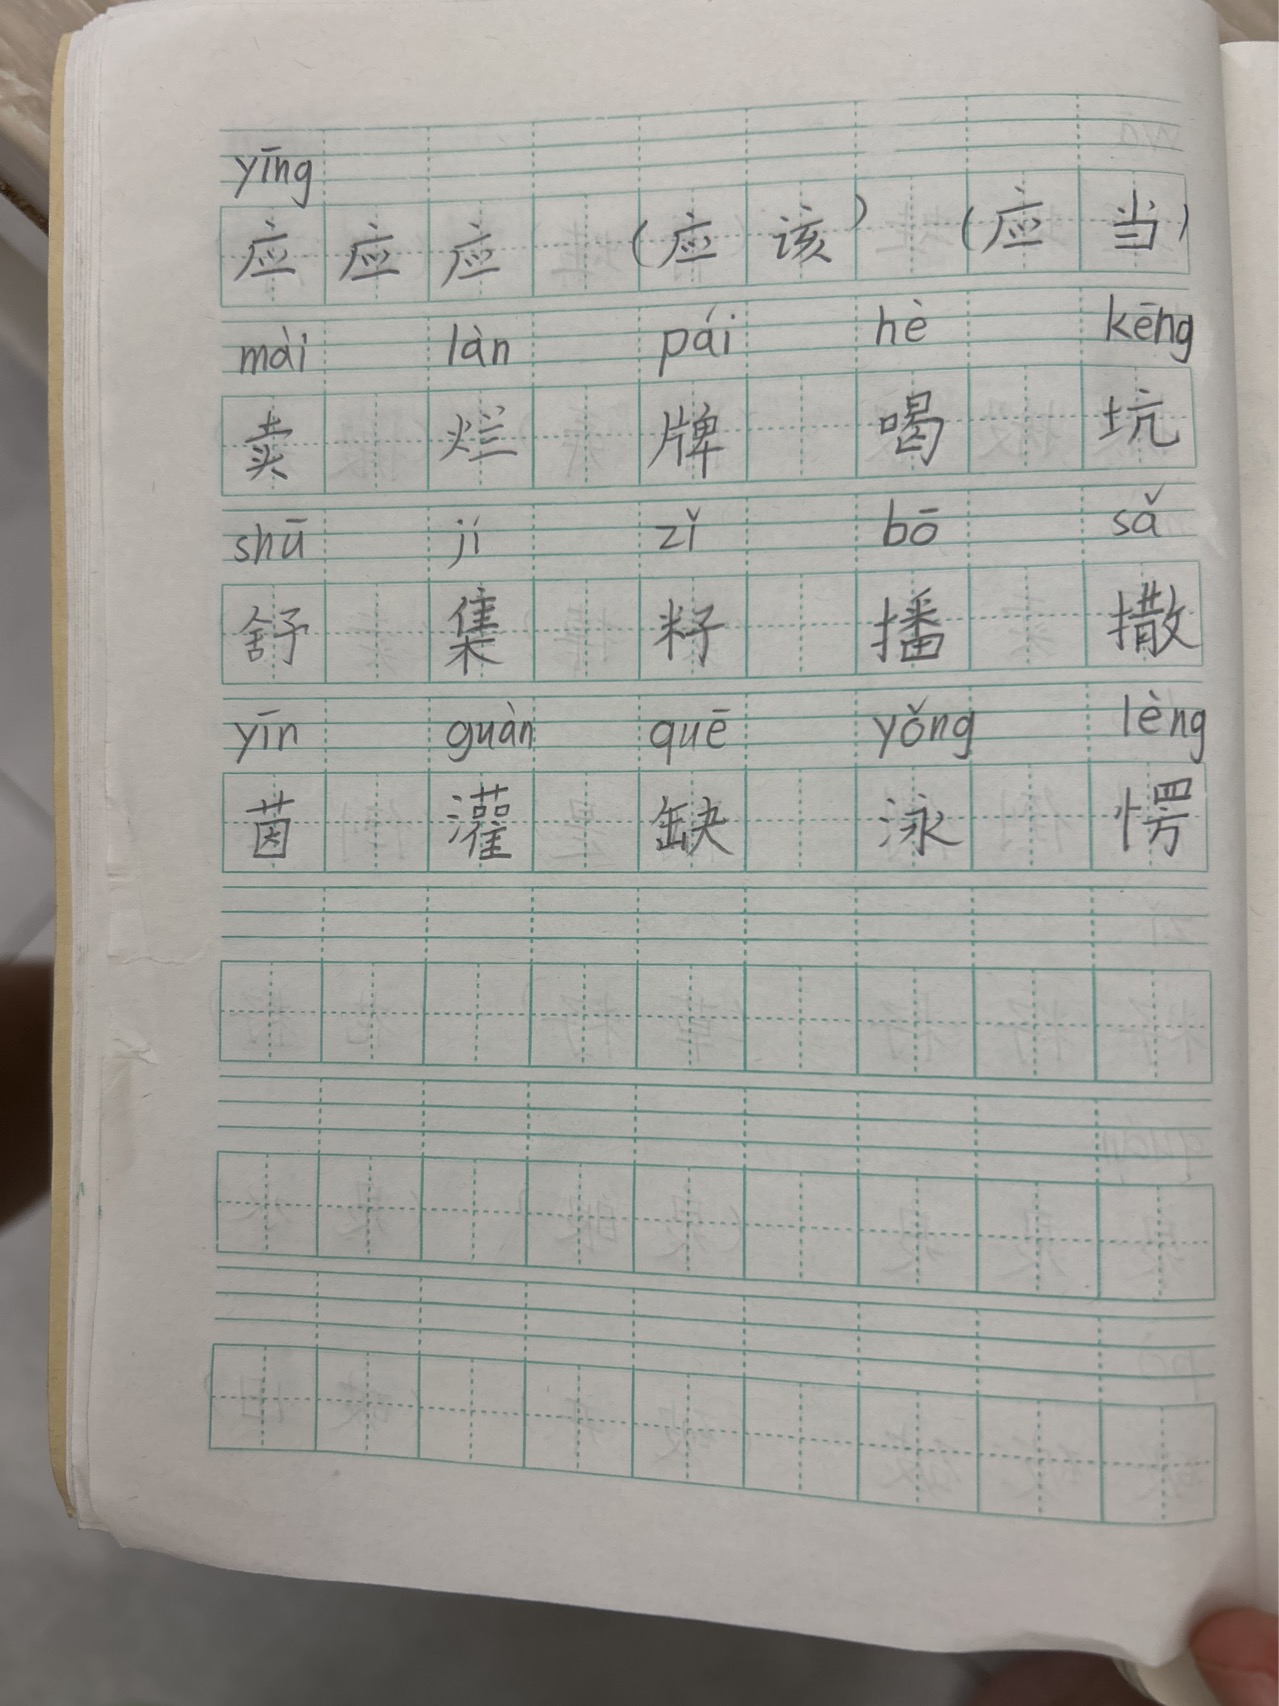 yīng
应 应 应 (应 该) (应 当)
mài làn pái hè kēng
卖 烂 牌 喝 坑
shū jí zǐ bō sǎ
舒 集 籽 播 撒
yīn guàn quē yǒng lèng
茵 灌 缺 泳 愣